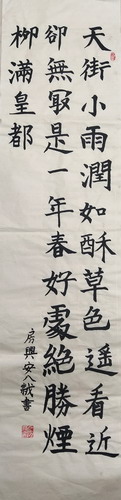 天街小雨潤如酥草色遙看近
卻無冣是一年春好處絕勝煙
柳滿皇都
房興安書